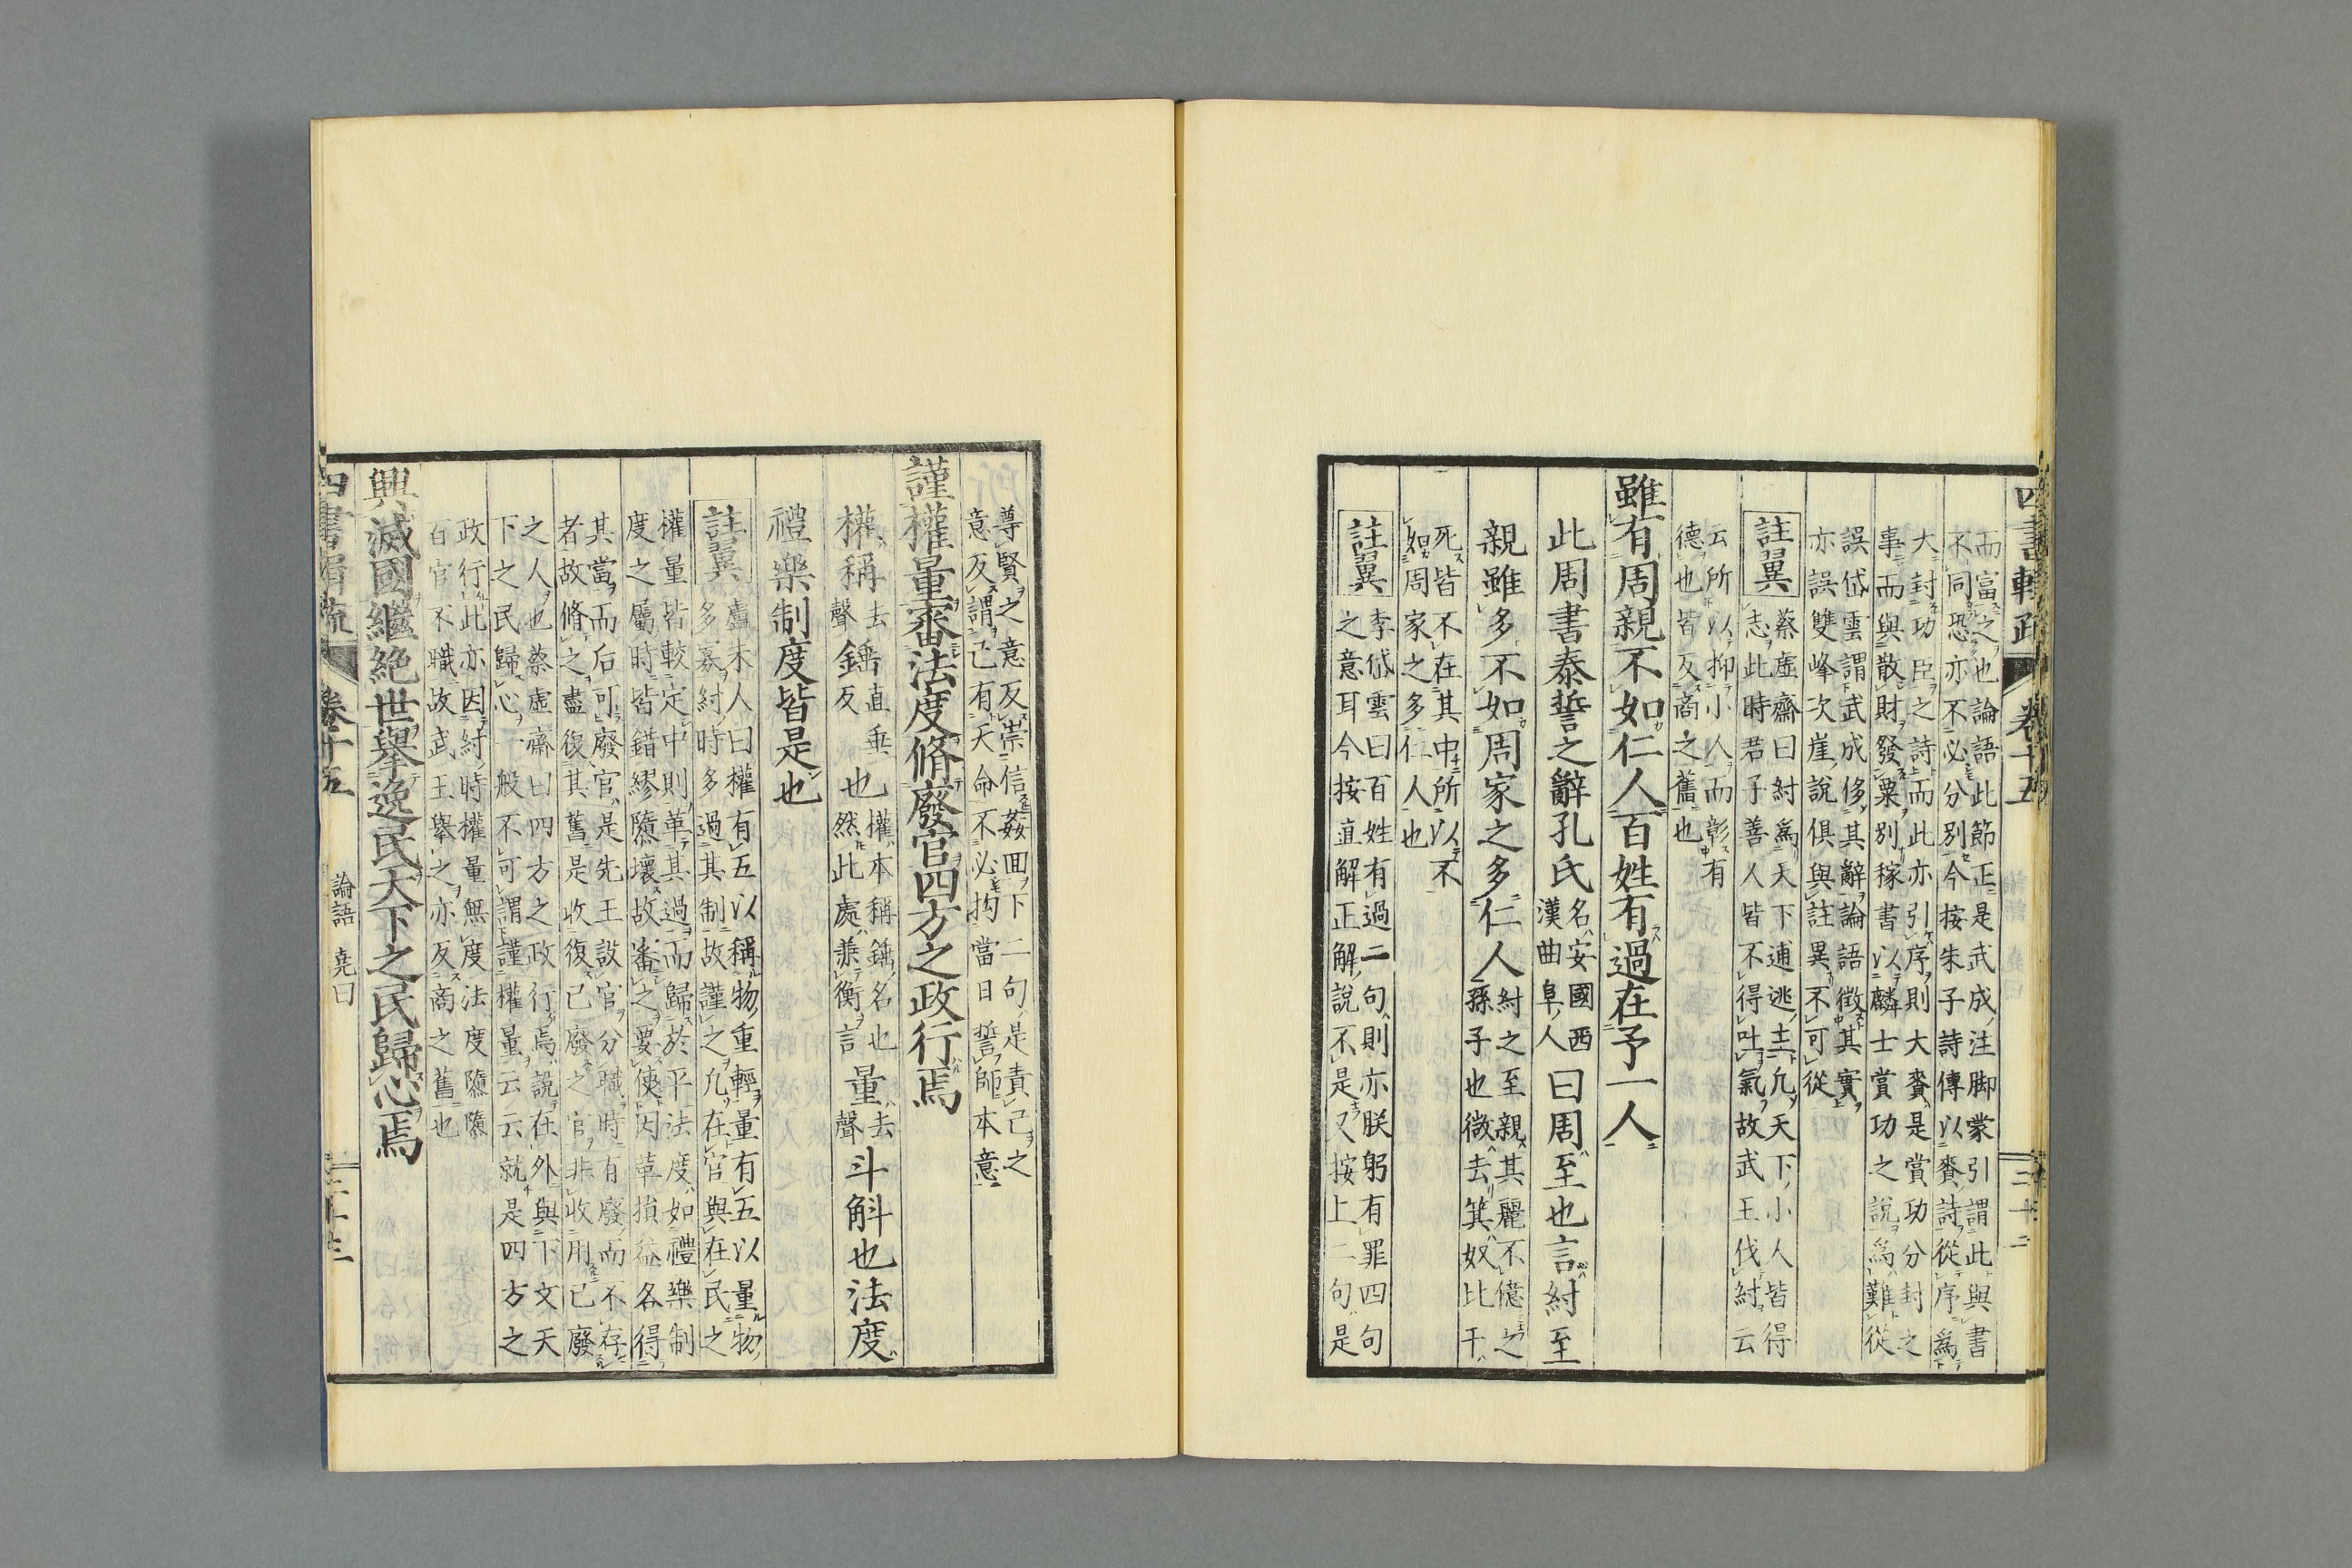 四書輯疏 卷十五 二十二
而富之也論語此節正是武成注脚蒙引謂此與書
不同恐亦不必分別今按朱子詩傳以賚詩從序爲
大封功臣之詩而此亦引序則大賚是賞功分封之
事而與散財發粟別稼書以麟士賞功之說爲難從
誤岱雲謂武成侈其辭論語徵其實
亦誤雙峰次崖說俱與註異不可從
註翼
蔡虛齋曰紂爲天下逋逃主凡天下小人皆得
志此時君子善人皆不得吐氣故武王伐紂云
云所以抑小人而彰有
德也皆反商之舊也
雖有周親不如仁人百姓有過在予一人
此周書泰誓之辭孔氏
名安國西
漢曲阜人
曰周至也言紂至
親雖多不如周家之多仁人
紂之至親其麗不億
孫子也微去箕奴比干
死皆不在其中所以不
如周家之多仁人也
註翼
李岱雲曰百姓有過二句則亦朕躬有罪四句
之意耳今按直解正解說不是又按上二句是
尊賢之意反崇信姦回下二句是責己之
意反謂己有天命不必拘當日誓師本意
謹權量審法度脩廢官四方之政行焉
權稱
去
聲
錘
直垂
反
也
權本稱錘名也
然此處兼衡言
量
去
聲
斗斛也法度
禮樂制度皆是也
註翼
盧未人曰權有五以稱物重輕量有五以量物
多寡紂時多過其制故謹之凡在官與在民之
權量皆較定中則革其過而歸於平法度如禮樂制
度之屬時皆錯繆隳壞故審之要使因革損益各得
其當而后可廢官是先王設官分職時有廢而不存
者故脩之盡復其舊是收復已廢之官非收用已廢
之人也蔡虛齋曰四方之政行焉說在外與下文天
下之民歸心一般不可謂謹權量云云就是四方之
政行此亦因紂時權量無度法度隳隳
百官不職故武王舉之亦反商之舊也
興滅國繼絕世舉逸民天下之民歸心焉
四書輯疏 卷十五 論語 堯曰 二十三